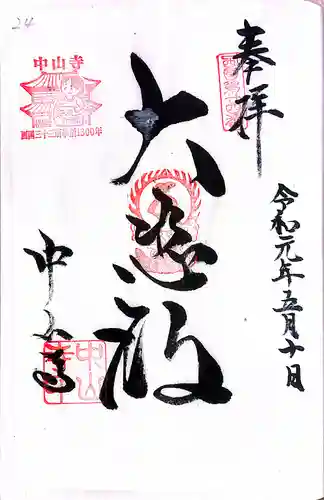 24
奉拝
令和元年五月十日
大悲殿
中山寺
中山寺
西国三十三所草創1300年
中山寺